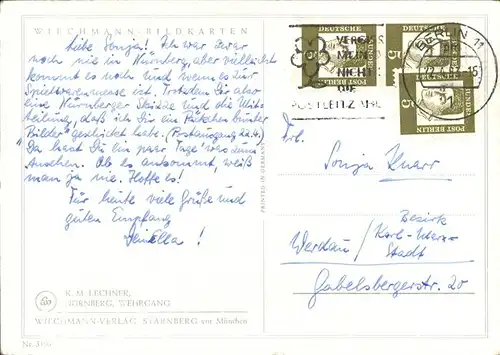 WIECHMANN-BILDKARTEN
Liebe Sonja! Ich war zwar
noch nie in Nürnberg, aber vielleicht
kommt es noch und wenn es zur
Spielwarenmesse ist. Trotzdem Dir also
eine Nürnberger Skizze und die Mit-
teilung, daß ich Dir ein Päckchen bunter
"Bilder" geschickt habe. (Postausgang 22.4.)
Da hast Du ein paar Tage was zum
Ansehen. Ob es ankommt, weiß
man ja nie. Hoffe es!
Für heute viele Grüße und
guten Empfang
Ella!
K. M. LECHNER,
NÜRNBERG, WEHRGANG
WIECHMANN-VERLAG STARNBERG vor München
PRINTED IN GERMANY
VERGISS
MEIN
NICHT
DIE
POSTLEITZAHL
DEUTSCHE
BUNDES
POST BERLIN
5
BERLIN 11
Frl.
Sonja Knarr
Werdau /
Bezirk
Karl-Marx-
Stadt
Gabelsbergerstr. 20